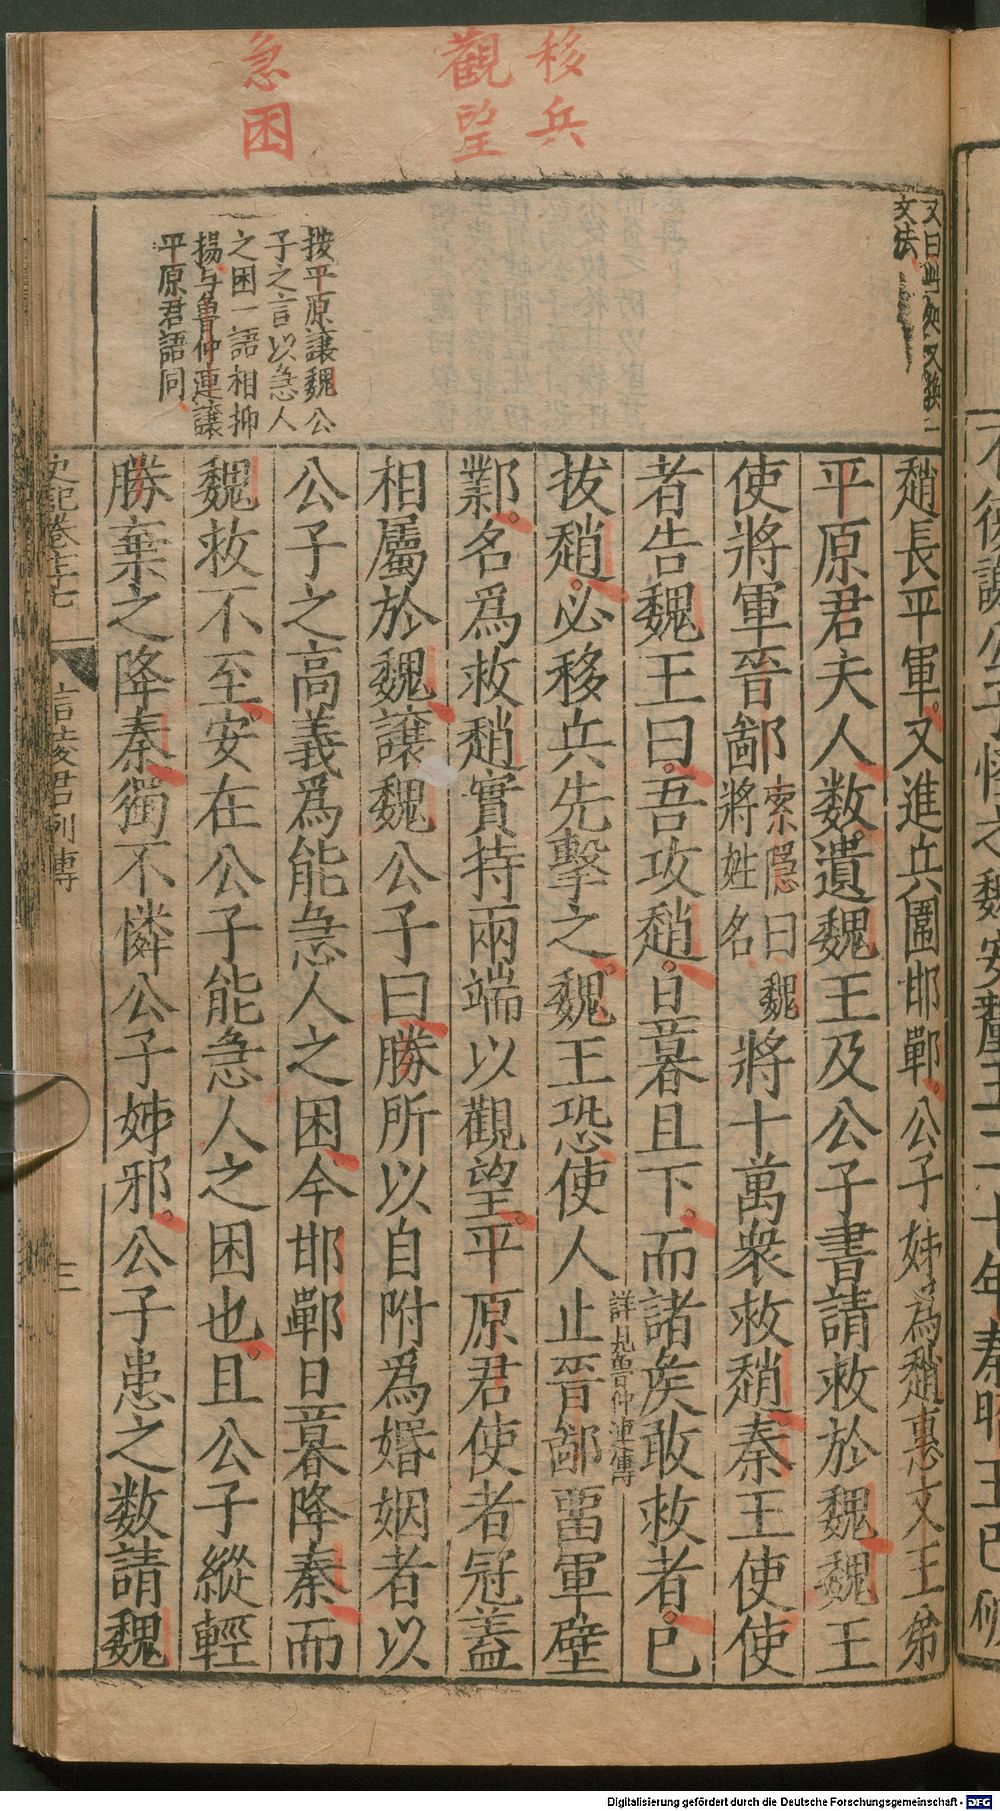 移兵
觀望
急困
文法
按平原讓魏公
子之言以急人
之困一語相抑
揚与魯仲連讓
平原君語同
趙長平軍又進兵圍邯鄲公子姊爲趙惠文王弟
平原君夫人数遺魏王及公子書請救於魏魏王
使將軍晉鄙
索隱曰魏
將姓名
將十萬衆救趙秦王使使
者告魏王曰吾攻趙旦暮且下而諸侯敢救者已
詳見魯仲連傳
拔趙必移兵先擊之魏王恐使人止晉鄙畱軍壁
鄴名爲救趙實持兩端以觀望平原君使者冠蓋
相屬於魏讓魏公子曰勝所以自附爲婚姻者以
公子之高義爲能急人之困今邯鄲旦暮降秦而
魏救不至安在公子能急人之困也且公子縱輕
勝棄之降秦獨不憐公子姊邪公子患之数請魏
史記卷七十七
信陵君列傳
三
Digitalisierung gefördert durch die Deutsche Forschungsgemeinschaft - DFG